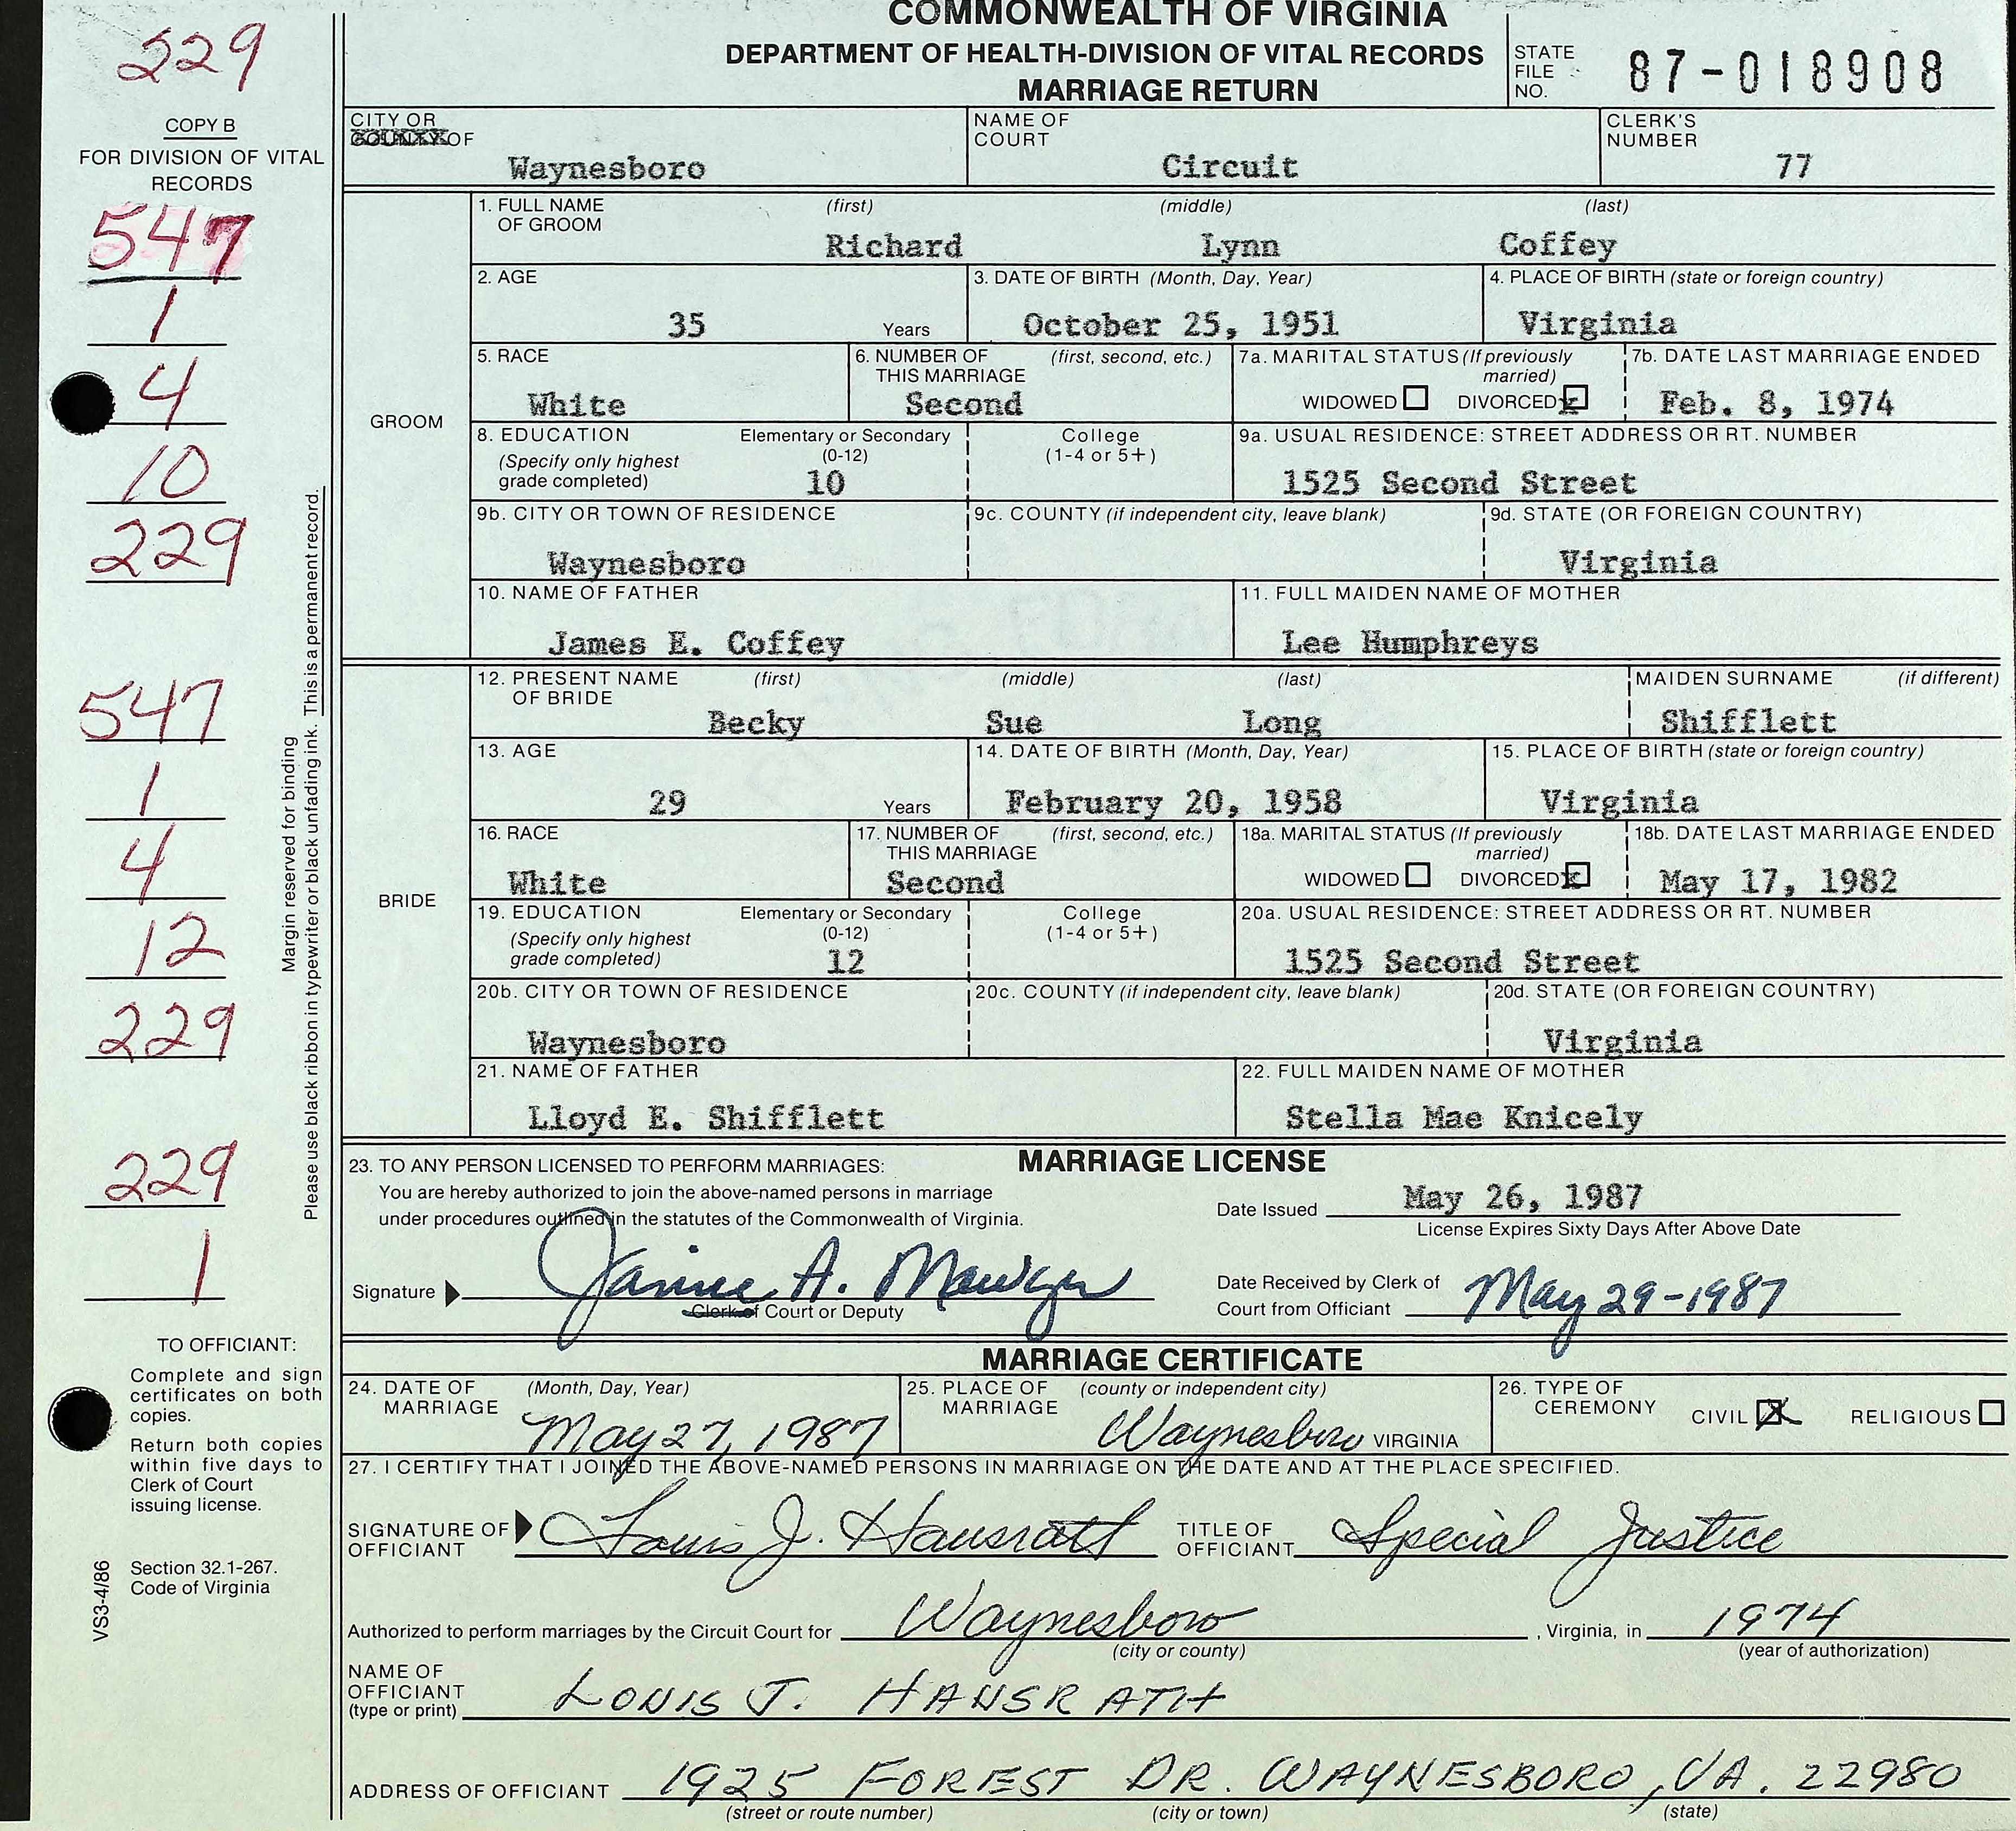 COMMONWEALTH OF VIRGINIA
DEPARTMENT OF HEALTH-DIVISION OF VITAL RECORDS
MARRIAGE RETURN
STATE FILE NO. 87-018908
229
COPY B
FOR DIVISION OF VITAL
RECORDS
547
1
4
10
229
547
1
4
12
229
229
1
Margin reserved for binding
Please use black ribbon in typewriter or black unfading ink. This is a permanent record.
TO OFFICIANT:
Complete and sign
certificates on both
copies.
Return both copies
within five days to
Clerk of Court
issuing license.
Section 32.1-267.
Code of Virginia
VS3-4/86
CITY OR COUNTY OF Waynesboro
NAME OF COURT Circuit
CLERK'S NUMBER 77
GROOM
1. FULL NAME OF GROOM (first) (middle) (last)
Richard Lynn Coffey
2. AGE 35 Years
3. DATE OF BIRTH (Month, Day, Year) October 25, 1951
4. PLACE OF BIRTH (state or foreign country) Virginia
5. RACE White
6. NUMBER OF THIS MARRIAGE (first, second, etc.) Second
7a. MARITAL STATUS (If previously married) WIDOWED DIVORCED x
7b. DATE LAST MARRIAGE ENDED Feb. 8, 1974
8. EDUCATION (Specify only highest grade completed) Elementary or Secondary (0-12) 10
College (1-4 or 5+)
9a. USUAL RESIDENCE: STREET ADDRESS OR RT. NUMBER 1525 Second Street
9b. CITY OR TOWN OF RESIDENCE Waynesboro
9c. COUNTY (if independent city, leave blank)
9d. STATE (OR FOREIGN COUNTRY) Virginia
10. NAME OF FATHER James E. Coffey
11. FULL MAIDEN NAME OF MOTHER Lee Humphreys
BRIDE
12. PRESENT NAME OF BRIDE (first) (middle) (last) MAIDEN SURNAME (if different)
Becky Sue Long Shifflett
13. AGE 29 Years
14. DATE OF BIRTH (Month, Day, Year) February 20, 1958
15. PLACE OF BIRTH (state or foreign country) Virginia
16. RACE White
17. NUMBER OF THIS MARRIAGE (first, second, etc.) Second
18a. MARITAL STATUS (If previously married) WIDOWED DIVORCED x
18b. DATE LAST MARRIAGE ENDED May 17, 1982
19. EDUCATION (Specify only highest grade completed) Elementary or Secondary (0-12) 12
College (1-4 or 5+)
20a. USUAL RESIDENCE: STREET ADDRESS OR RT. NUMBER 1525 Second Street
20b. CITY OR TOWN OF RESIDENCE Waynesboro
20c. COUNTY (if independent city, leave blank)
20d. STATE (OR FOREIGN COUNTRY) Virginia
21. NAME OF FATHER Lloyd E. Shifflett
22. FULL MAIDEN NAME OF MOTHER Stella Mae Knicely
MARRIAGE LICENSE
23. TO ANY PERSON LICENSED TO PERFORM MARRIAGES:
You are hereby authorized to join the above-named persons in marriage
under procedures outlined in the statutes of the Commonwealth of Virginia.
Date Issued May 26, 1987
License Expires Sixty Days After Above Date
Signature Janice A.
Clerk of Court or Deputy
Date Received by Clerk of
Court from Officiant May 29-1987
MARRIAGE CERTIFICATE
24. DATE OF MARRIAGE (Month, Day, Year) May 27, 1987
25. PLACE OF MARRIAGE (county or independent city) Waynesboro VIRGINIA
26. TYPE OF CEREMONY CIVIL X RELIGIOUS
27. I CERTIFY THAT I JOINED THE ABOVE-NAMED PERSONS IN MARRIAGE ON THE DATE AND AT THE PLACE SPECIFIED.
SIGNATURE OF OFFICIANT Louis J. Hausrath
TITLE OF OFFICIANT Special Justice
Authorized to perform marriages by the Circuit Court for Waynesboro, Virginia, in 1974
(city or county) (year of authorization)
NAME OF OFFICIANT (type or print) LOUIS J. HAUSRATH
ADDRESS OF OFFICIANT 1925 FOREST DR. WAYNESBORO, VA. 22980
(street or route number) (city or town) (state)